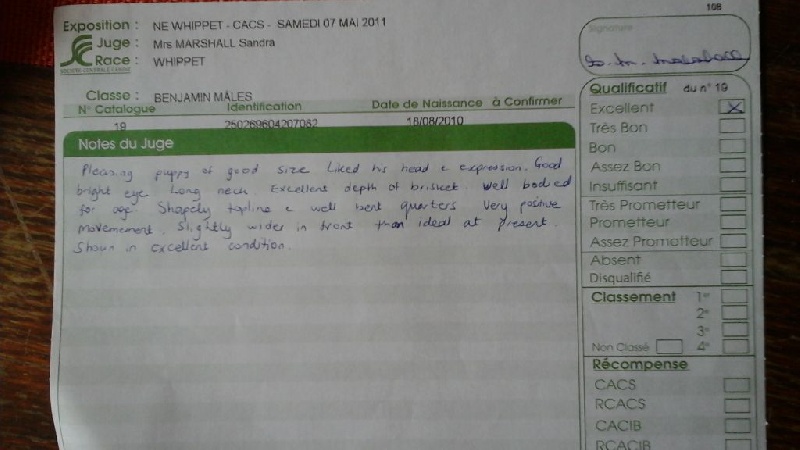 108
Exposition : NE WHIPPET - CACS - SAMEDI 07 MAI 2011
Juge : Mrs MARSHALL Sandra
Race : WHIPPET
SOCIÉTÉ CENTRALE CANINE
Classe : BENJAMIN MÂLES
N° Catalogue Identification Date de Naissance à Confirmer
19 250269604207082 18/08/2010
Notes du Juge
Pleasing puppy of good size Liked his head & expression. Good
bright eye Long neck Excellent depth of brisket Well bodied
for age Shapely topline & well bent quarters Very positive
movemement. Slightly wider in front than ideal at present.
Shown in excellent condition.
Signature
Qualificatif du n° 19
Excellent X
Très Bon
Bon
Assez Bon
Insuffisant
Très Prometteur
Prometteur
Assez Prometteur
Absent
Disqualifié
Classement 1er
2e
3e
Non Classé 4e
Récompense
CACS
RCACS
CACIB
RCACIB